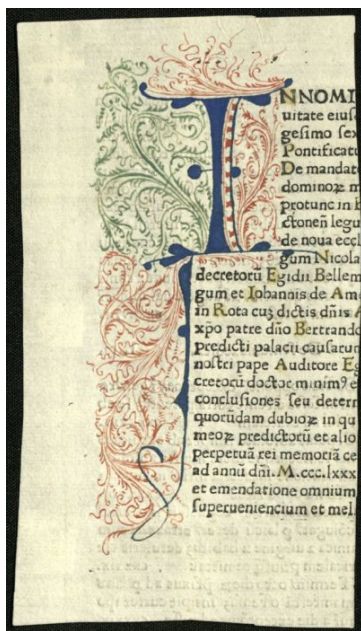 INNOMI
uitate eius
gesimo sex
Pontificatu
De mandat
dominoꝝ m
protunc in
ctoneñ legu
de noua eccl
gum Nicola
decretorū Egidii Bellem
gum et Iohannis de Am
in Rota cuꝫ dictis dñis A
xpo patre dño Bertrando
predicti palacii causaruꝫ
nostri pape Auditore Eg
cretorū doctor minimꝰ e
conclusiones seu determ
quorūdam dubioꝝ in qu
meoꝝ predictorū et alio
perpetuā rei memoriā ce
ad annū dñi. M.ccc.lxxx
et emendatione omnium
superueniencium et mel